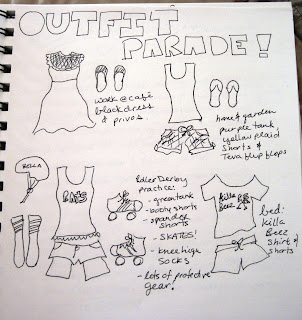 OUTFIT
PARADE!
work @ café
black dress
& privos
home & garden
purple tank,
yellow plaid
shorts &
Teva flip flops
BELLA
RATS
Roller Derby
practice:
- green tank
- booty shorts
- spandex
shorts
- SKATES!
- knee high
socks
- lots of protective
gear!
Killa
Beez
bed:
Killa
Beez
Shirt &
shorts